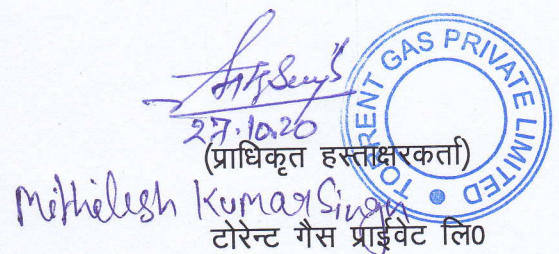 27.10.20
(प्राधिकृत हस्ताक्षरकर्ता)
Mithilesh Kumar Singh
टोरेन्ट गैस प्राईवेट लि0
TORRENT GAS PRIVATE LIMITED